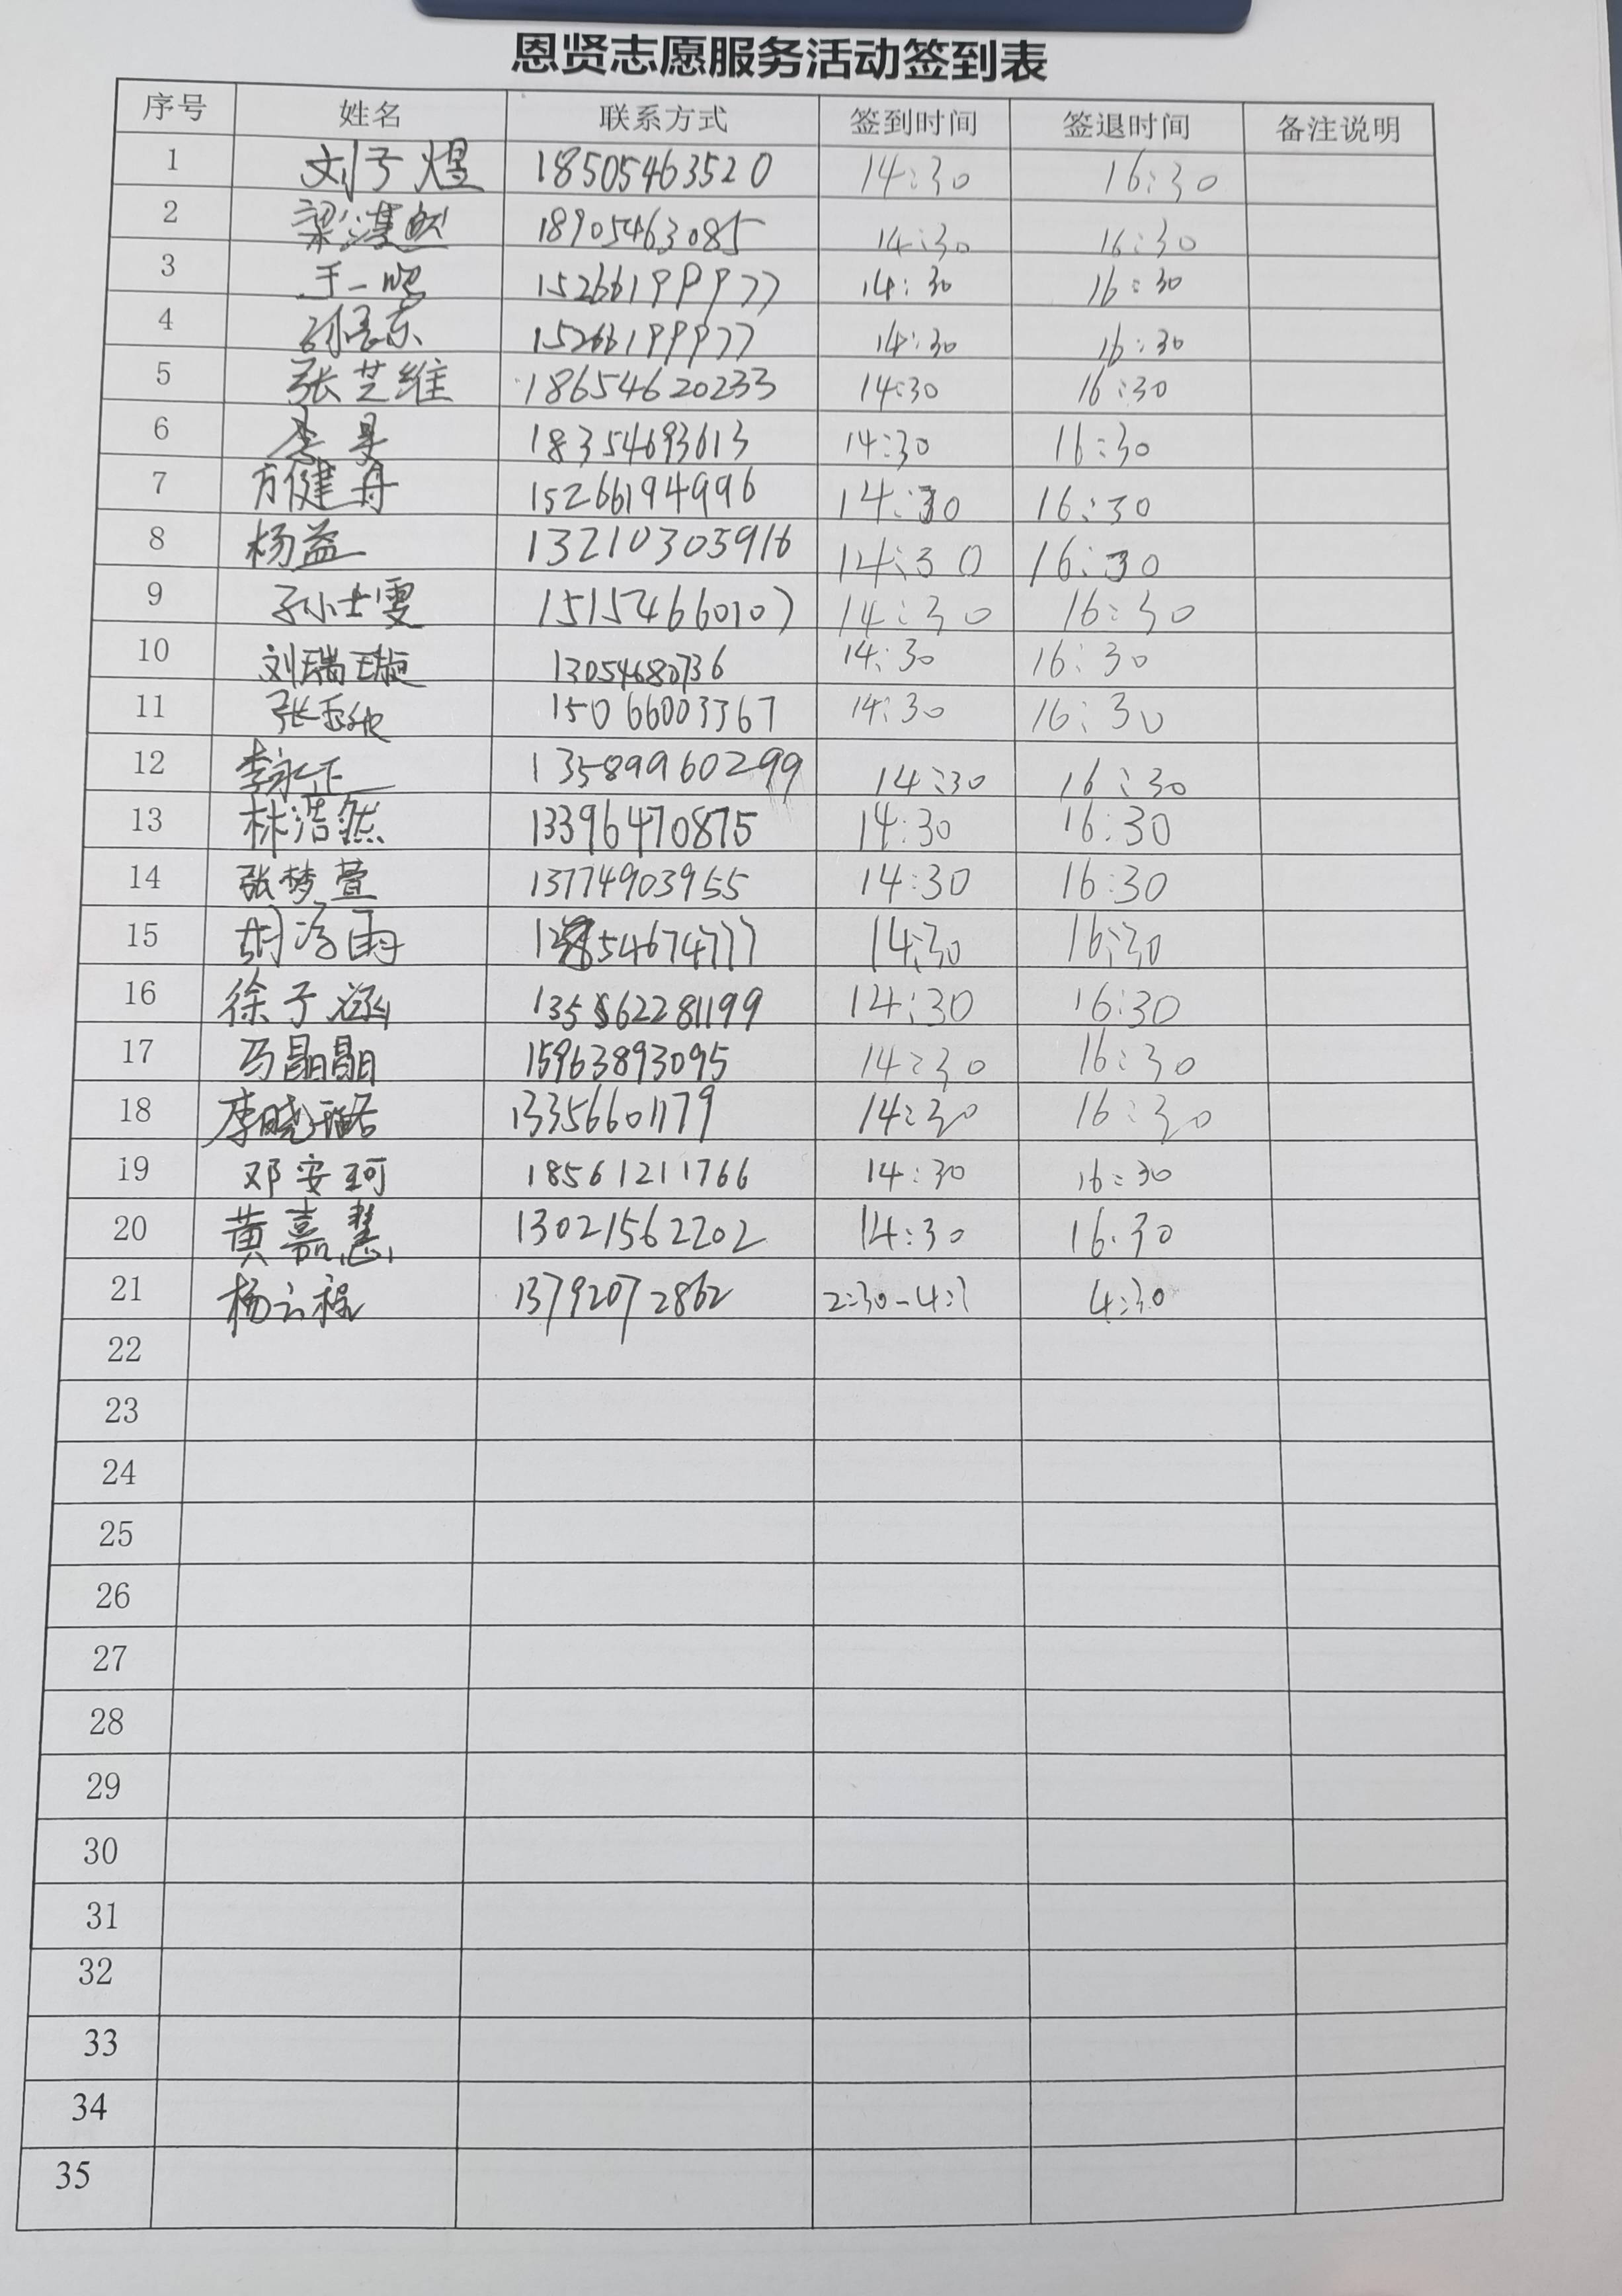 恩贤志愿服务活动签到表
序号 姓名 联系方式 签到时间 签退时间 备注说明
1 刘子煜 18505463520 14:30 16:30
2 梁淇然 18905463085 14:30 16:30
3 王一 15266199977 14:30 16:30
4 15266199977 14:30 16:30
5 张芝维 18654620233 14:30 16:30
6 李昊 18354693613 14:30 16:30
7 方健舟 15266194996 14:30 16:30
8 杨益 13210305916 14:30 16:30
9 孙士雯 15154660107 14:30 16:30
10 刘瑞璇 13054680736 14:30 16:30
11 张 15066003367 14:30 16:30
12 李永正 135899960299 14:30 16:30
13 林浩然 13396470875 14:30 16:30
14 张梦萱 13774903955 14:30 16:30
15 胡泠雨 14:30 16:30
16 徐子涵 14:30 16:30
17 马晶晶 15963893095 14:30 16:30
18 李晓璐 13356601179 14:30 16:30
19 邓安珂 18561211766 14:30 16:30
20 黄嘉慧 13021562202 14:30 16:30
21 杨云程 13792072862 2:30-4:3 4:30
22
23
24
25
26
27
28
29
30
31
32
33
34
35